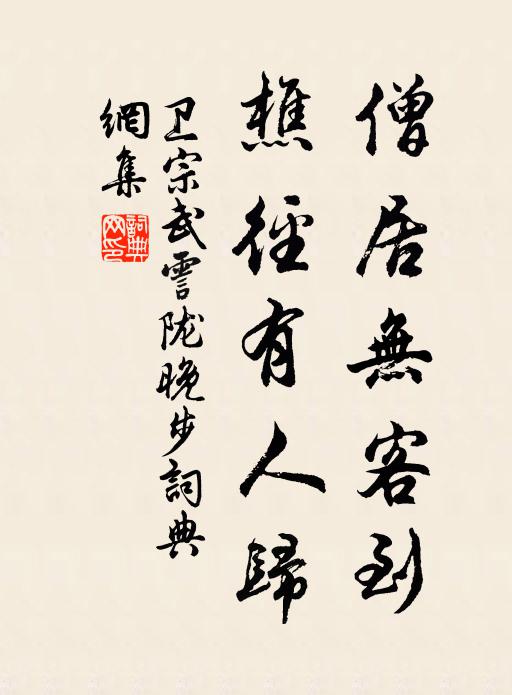 僧居無客到
樵徑有人歸
卫宗武雲陇晚步詞典
網集
詞典
网印